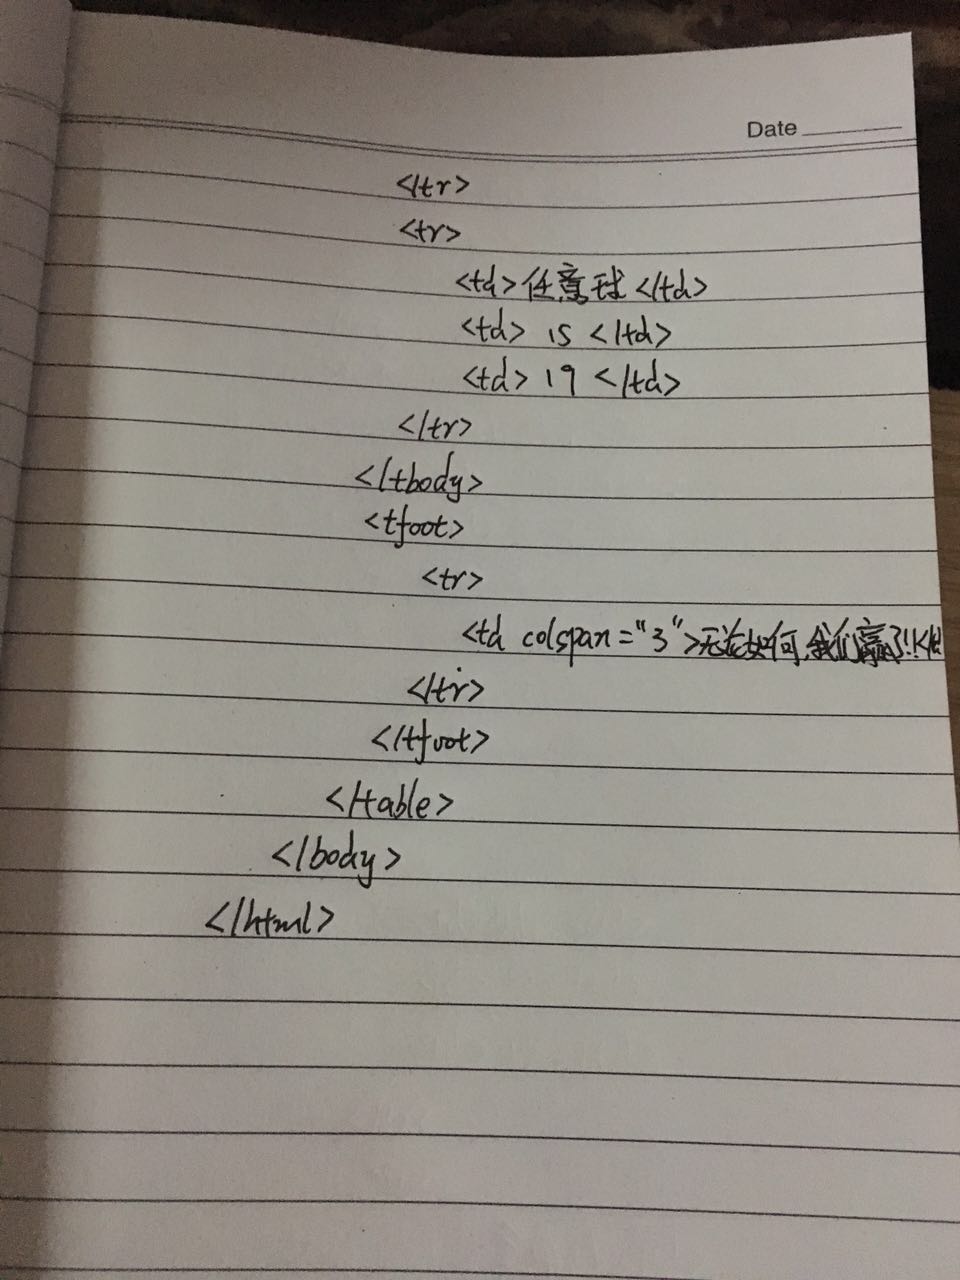 Date
</tr>
<tr>
<td>任意球</td>
<td> 15 </td>
<td> 19 </td>
</tr>
</tbody>
<tfoot>
<tr>
<td colspan="3">无论如何,我们赢了!!</td
</tr>
</tfoot>
</table>
</body>
</html>